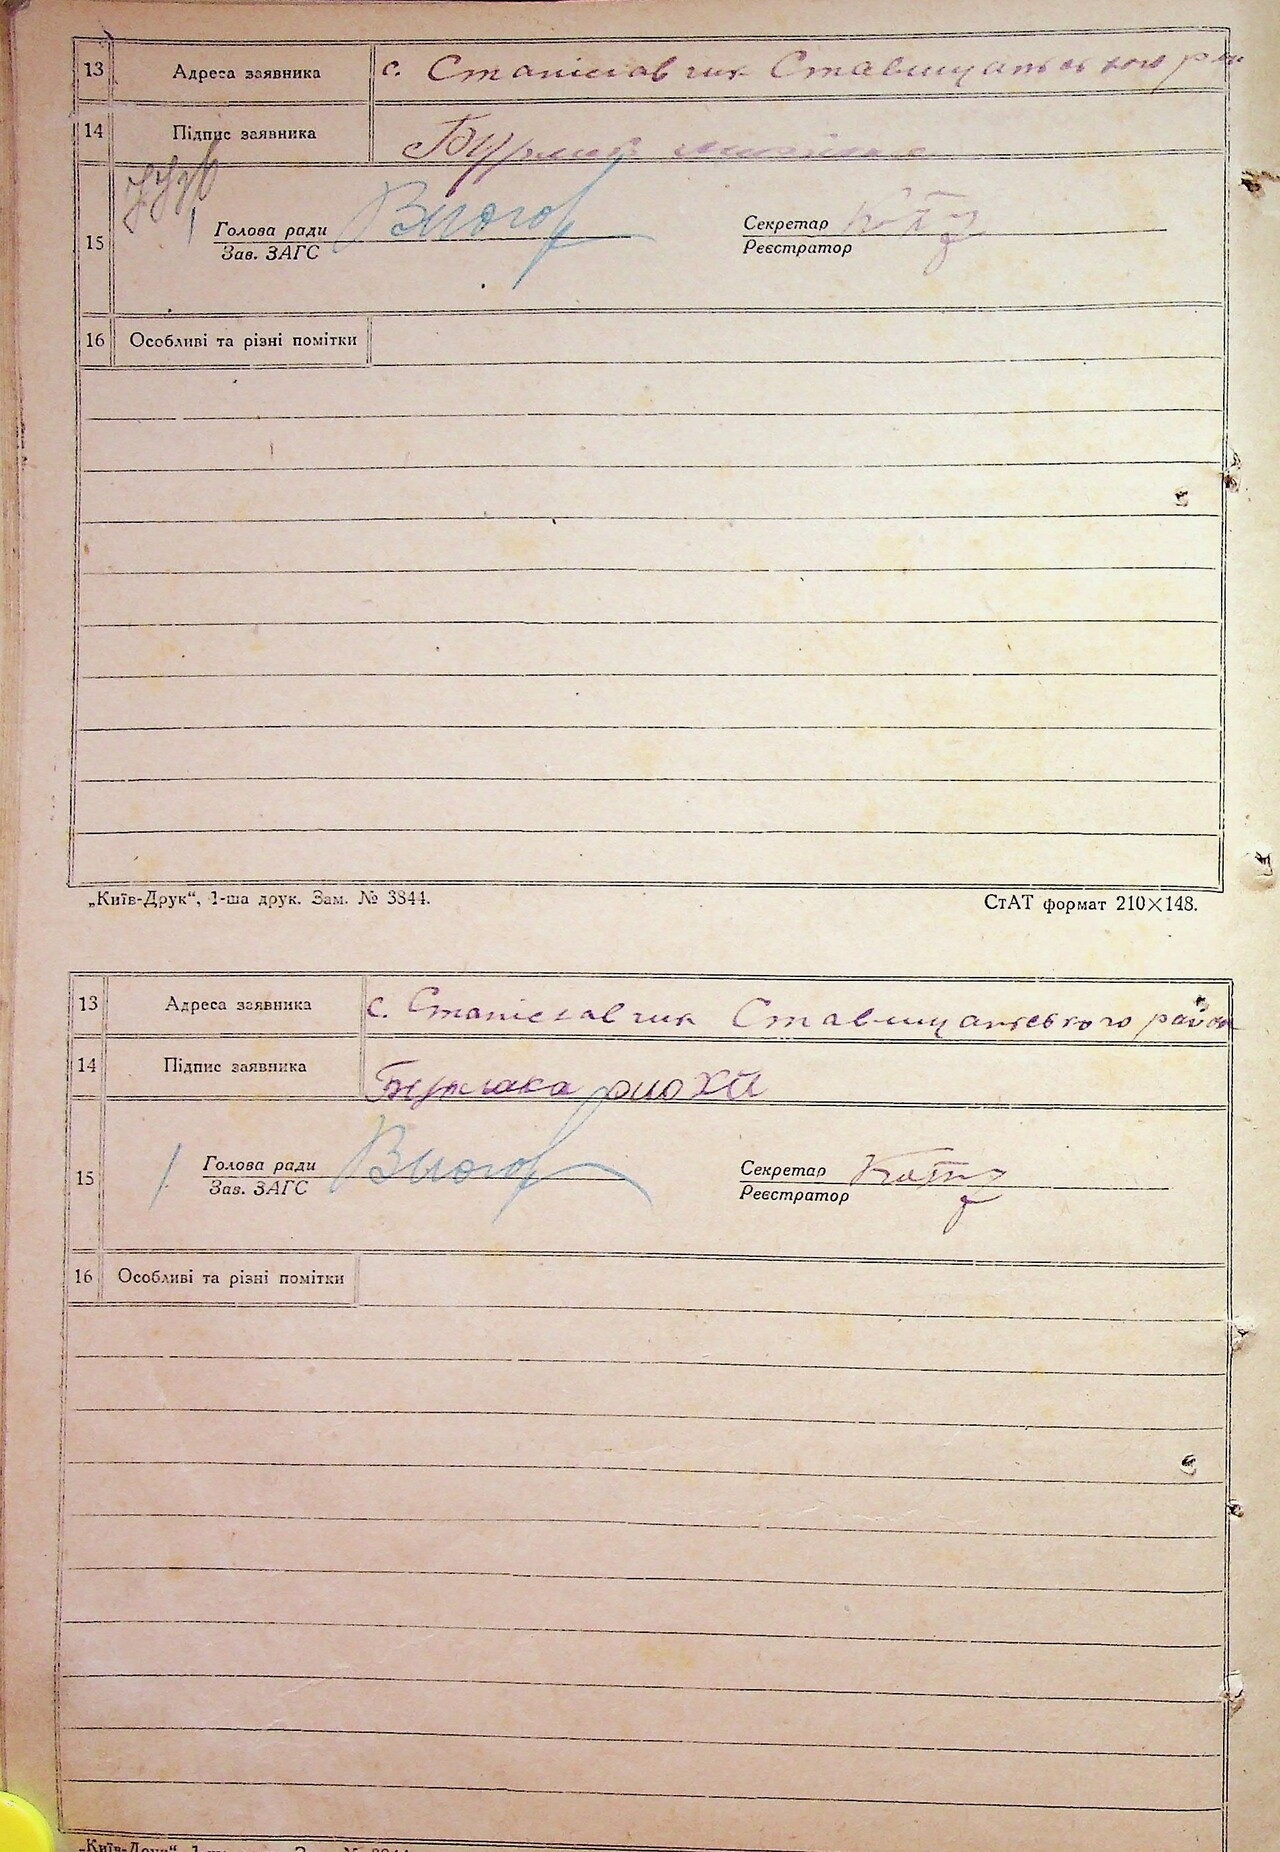 13 Адреса заявника с. Станіславчик Ставищанського рай
14 Підпис заявника Бурлак
15 Голова ради Секретар
Зав. ЗАГС Реєстратор
16 Особливі та різні помітки
„Київ-Друк“, 1-ша друк. Зам. № 3844. СтАТ формат 210×148.
13 Адреса заявника с. Станіславчик Ставищанського район
14 Підпис заявника Бурлака
15 Голова ради Секретар
Зав. ЗАГС Реєстратор
16 Особливі та різні помітки
„Київ-Друк“, 1-ша